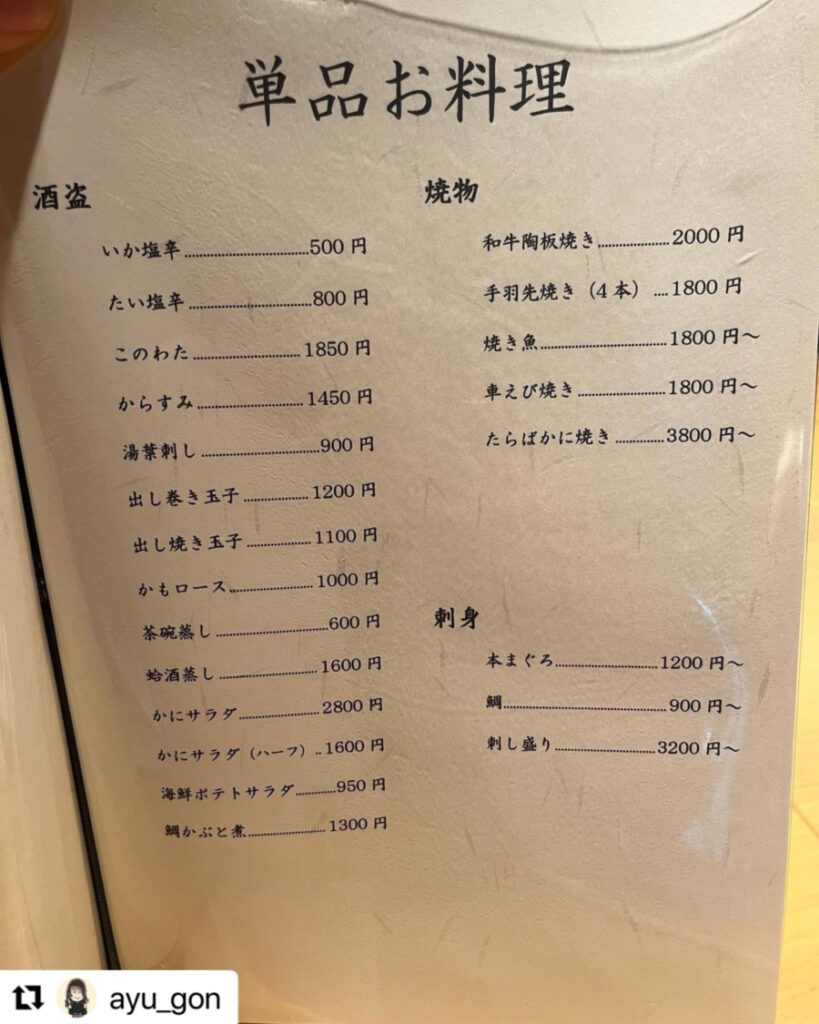 単品お料理
酒盗
いか塩辛 500 円
たい塩辛 800 円
このわた 1850 円
からすみ 1450 円
湯葉刺し 900 円
出し巻き玉子 1200 円
出し焼き玉子 1100 円
かもロース 1000 円
茶碗蒸し 600 円
蛤酒蒸し 1600 円
かにサラダ 2800 円
かにサラダ（ハーフ） 1600 円
海鮮ポテトサラダ 950 円
鯛かぶと煮 1300 円
焼物
和牛陶板焼き 2000 円
手羽先焼き（4 本） 1800 円
焼き魚 1800 円〜
車えび焼き 1800 円〜
たらばかに焼き 3800 円〜
刺身
本まぐろ 1200 円〜
鯛 900 円〜
刺し盛り 3200 円〜
ayu_gon